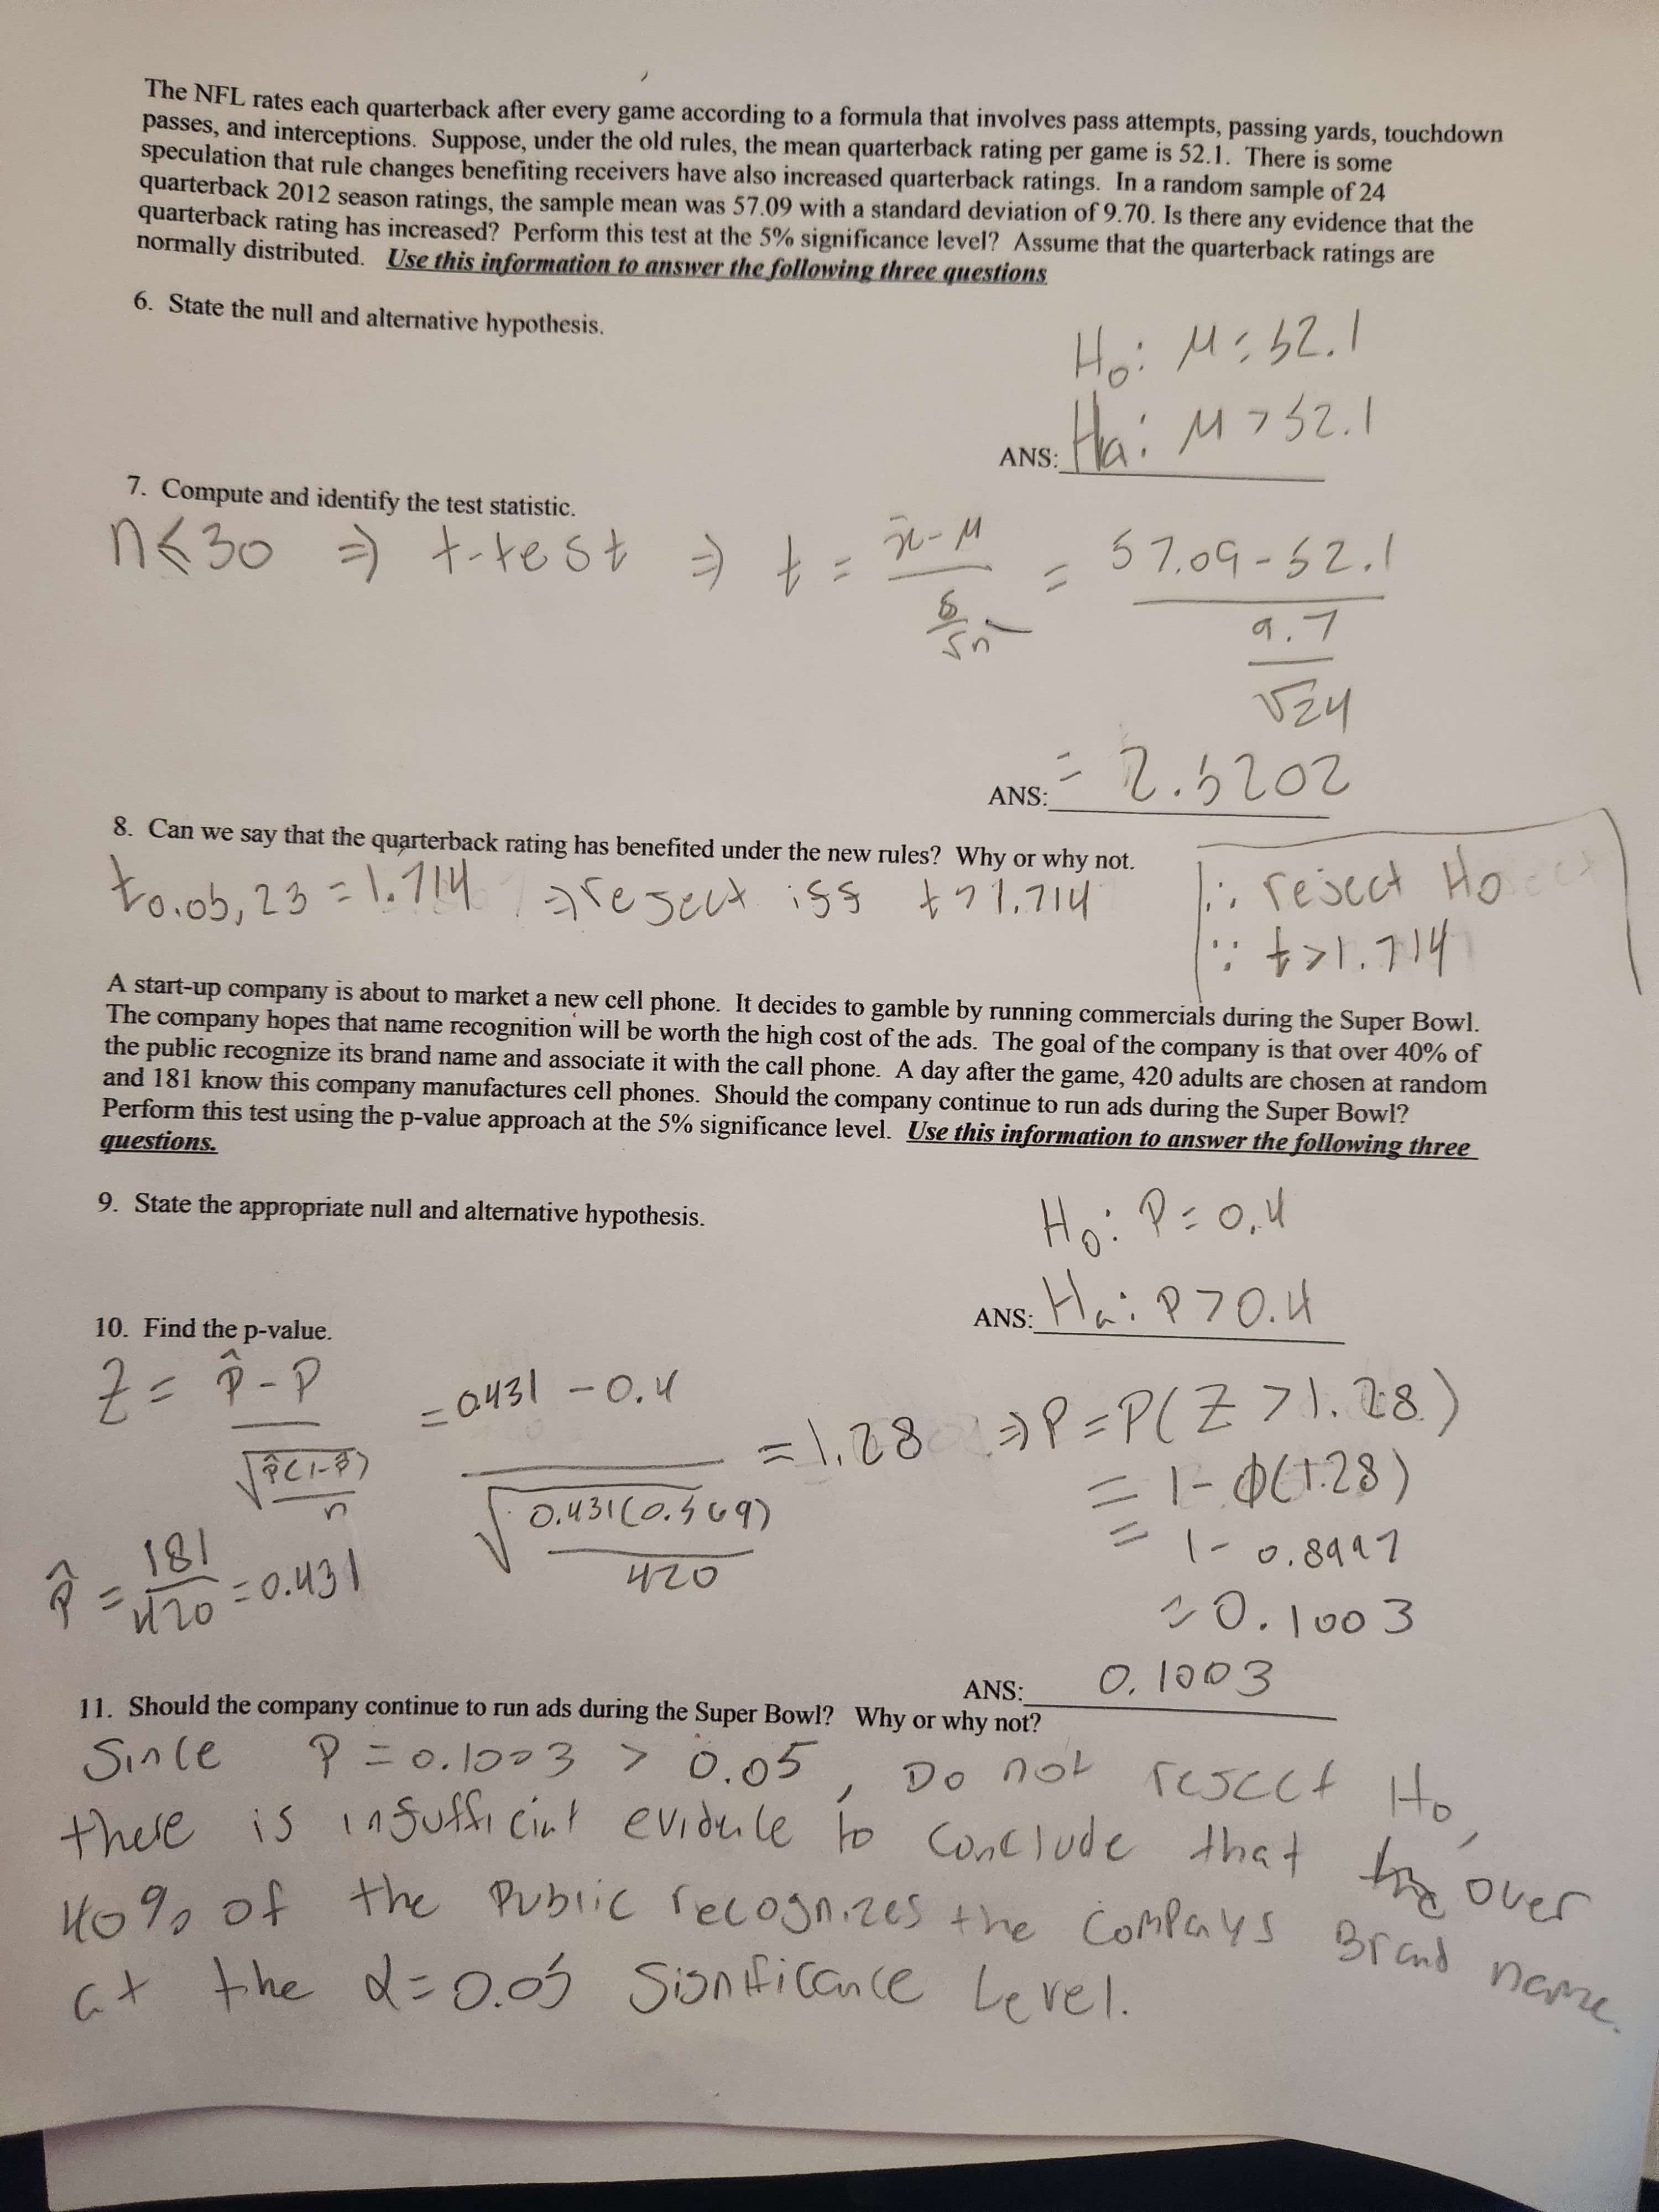 The NFL rates each quarterback after every game according to a formula that involves pass attempts, passing yards, touchdown
passes, and interceptions. Suppose, under the old rules, the mean quarterback rating per game is 52.1. There is some
speculation that rule changes benefiting receivers have also increased quarterback ratings. In a random sample of 24
quarterback 2012 season ratings, the sample mean was 57.09 with a standard deviation of 9.70. Is there any evidence that the
quarterback rating has increased? Perform this test at the 5% significance level? Assume that the quarterback ratings are
normally distributed. Use this information to answer the following three questions
6. State the null and alternative hypothesis.
H₀: μ = 52.1
ANS: Ha: μ > 52.1
7. Compute and identify the test statistic.
n < 30 ⇒ t-test ⇒ t = (x̄ - μ) / (s/√n) = (57.09 - 52.1) / (9.7/√24)
ANS: = 2.5202
8. Can we say that the quarterback rating has benefited under the new rules? Why or why not.
t₀.₀₅, 23 = 1.714 ⇒ reject iff t > 1.714
∴ reject H₀
∵ t > 1.714
A start-up company is about to market a new cell phone. It decides to gamble by running commercials during the Super Bowl.
The company hopes that name recognition will be worth the high cost of the ads. The goal of the company is that over 40% of
the public recognize its brand name and associate it with the call phone. A day after the game, 420 adults are chosen at random
and 181 know this company manufactures cell phones. Should the company continue to run ads during the Super Bowl?
Perform this test using the p-value approach at the 5% significance level. Use this information to answer the following three
questions.
9. State the appropriate null and alternative hypothesis.
H₀: P = 0.4
ANS: Ha: P > 0.4
10. Find the p-value.
Z = (p̂ - P) / √(p̂(1-p̂)/n) = (0.431 - 0.4) / √(0.431(0.569)/420) = 1.28 ⇒ P = P(Z > 1.28)
= 1 - Φ(1.28)
= 1 - 0.8997
= 0.1003
p̂ = 181/420 = 0.431
ANS: 0.1003
11. Should the company continue to run ads during the Super Bowl? Why or why not?
Since P = 0.1003 > 0.05, Do not reject H₀,
there is insufficient evidence to conclude that over
40% of the Public recognizes the Compays Brand name
at the α = 0.05 Significance Level.